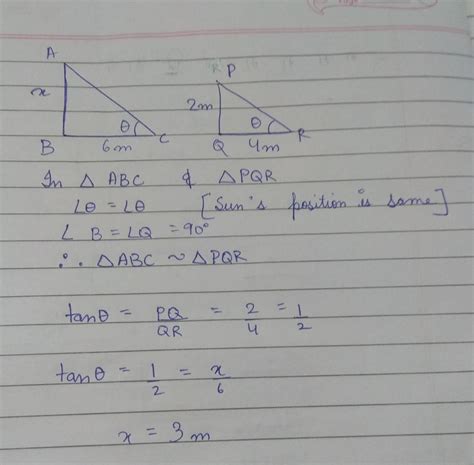 A
x
B
6m
θ
C
P
2m
Q
4m
θ
R
In △ ABC & △PQR
∠θ = ∠θ [Sun's position is same]
∠ B = ∠Q = 90°
∴ △ABC ~ △PQR
tanθ = PQ/QR = 2/4 = 1/2
tanθ = 1/2 = x/6
x = 3m